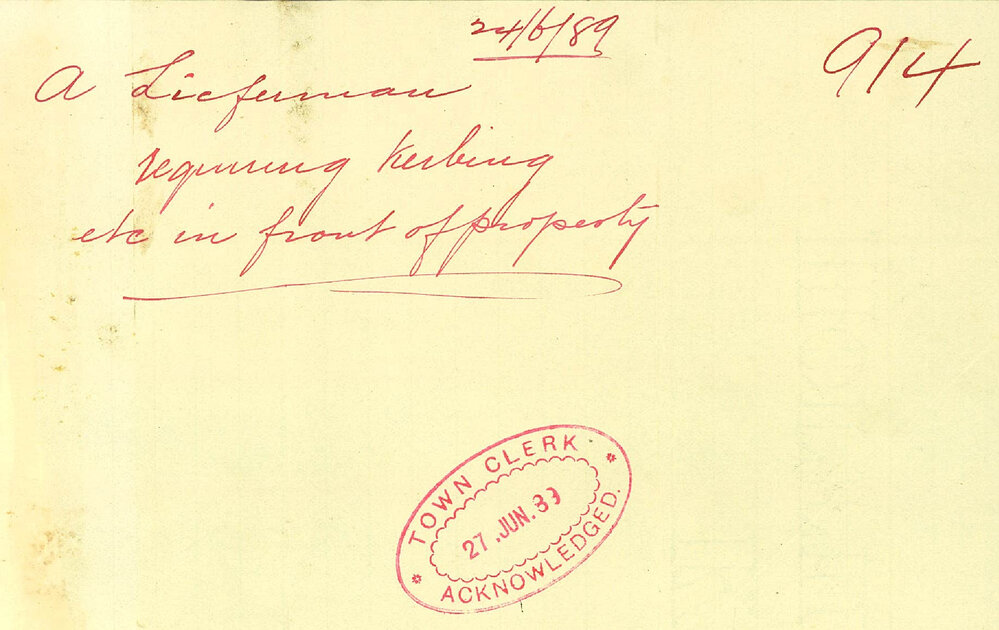 24/6/89
914
A Lieferman
requiring Kerbing
etc in front of property
TOWN CLERK
27.JUN.89
ACKNOWLEDGED.